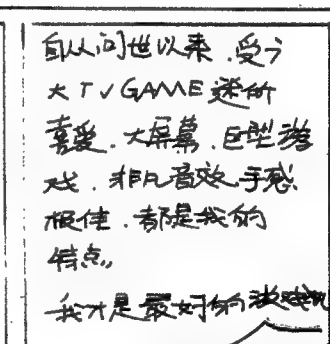 自从问世以来.受广
大TVGAME迷的
喜爱.大屏幕.巨型游
戏.非凡音效.手感
极佳.都是我的
特点。
我才是最好的游戏机